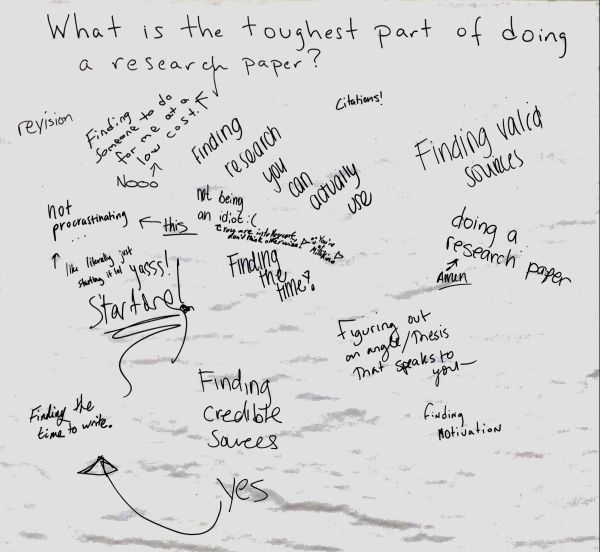 What is the toughest part of doing
a research paper?
revision
Finding
someone to do
for me at a
low cost.
Nooo
Finding
research
you
can
actually
use
Citations!
Finding valid
sources
not
procrastinating
....
this
not being
an idiot :(
like literally just
starting it lol
yasss!
Starting!
Finding
the
time!
doing a
research paper
Amen
Figuring out
an angle/Thesis
That speaks to
you—
Finding the
time to write.
Finding
Credible
Sources
yes
finding
Motivation